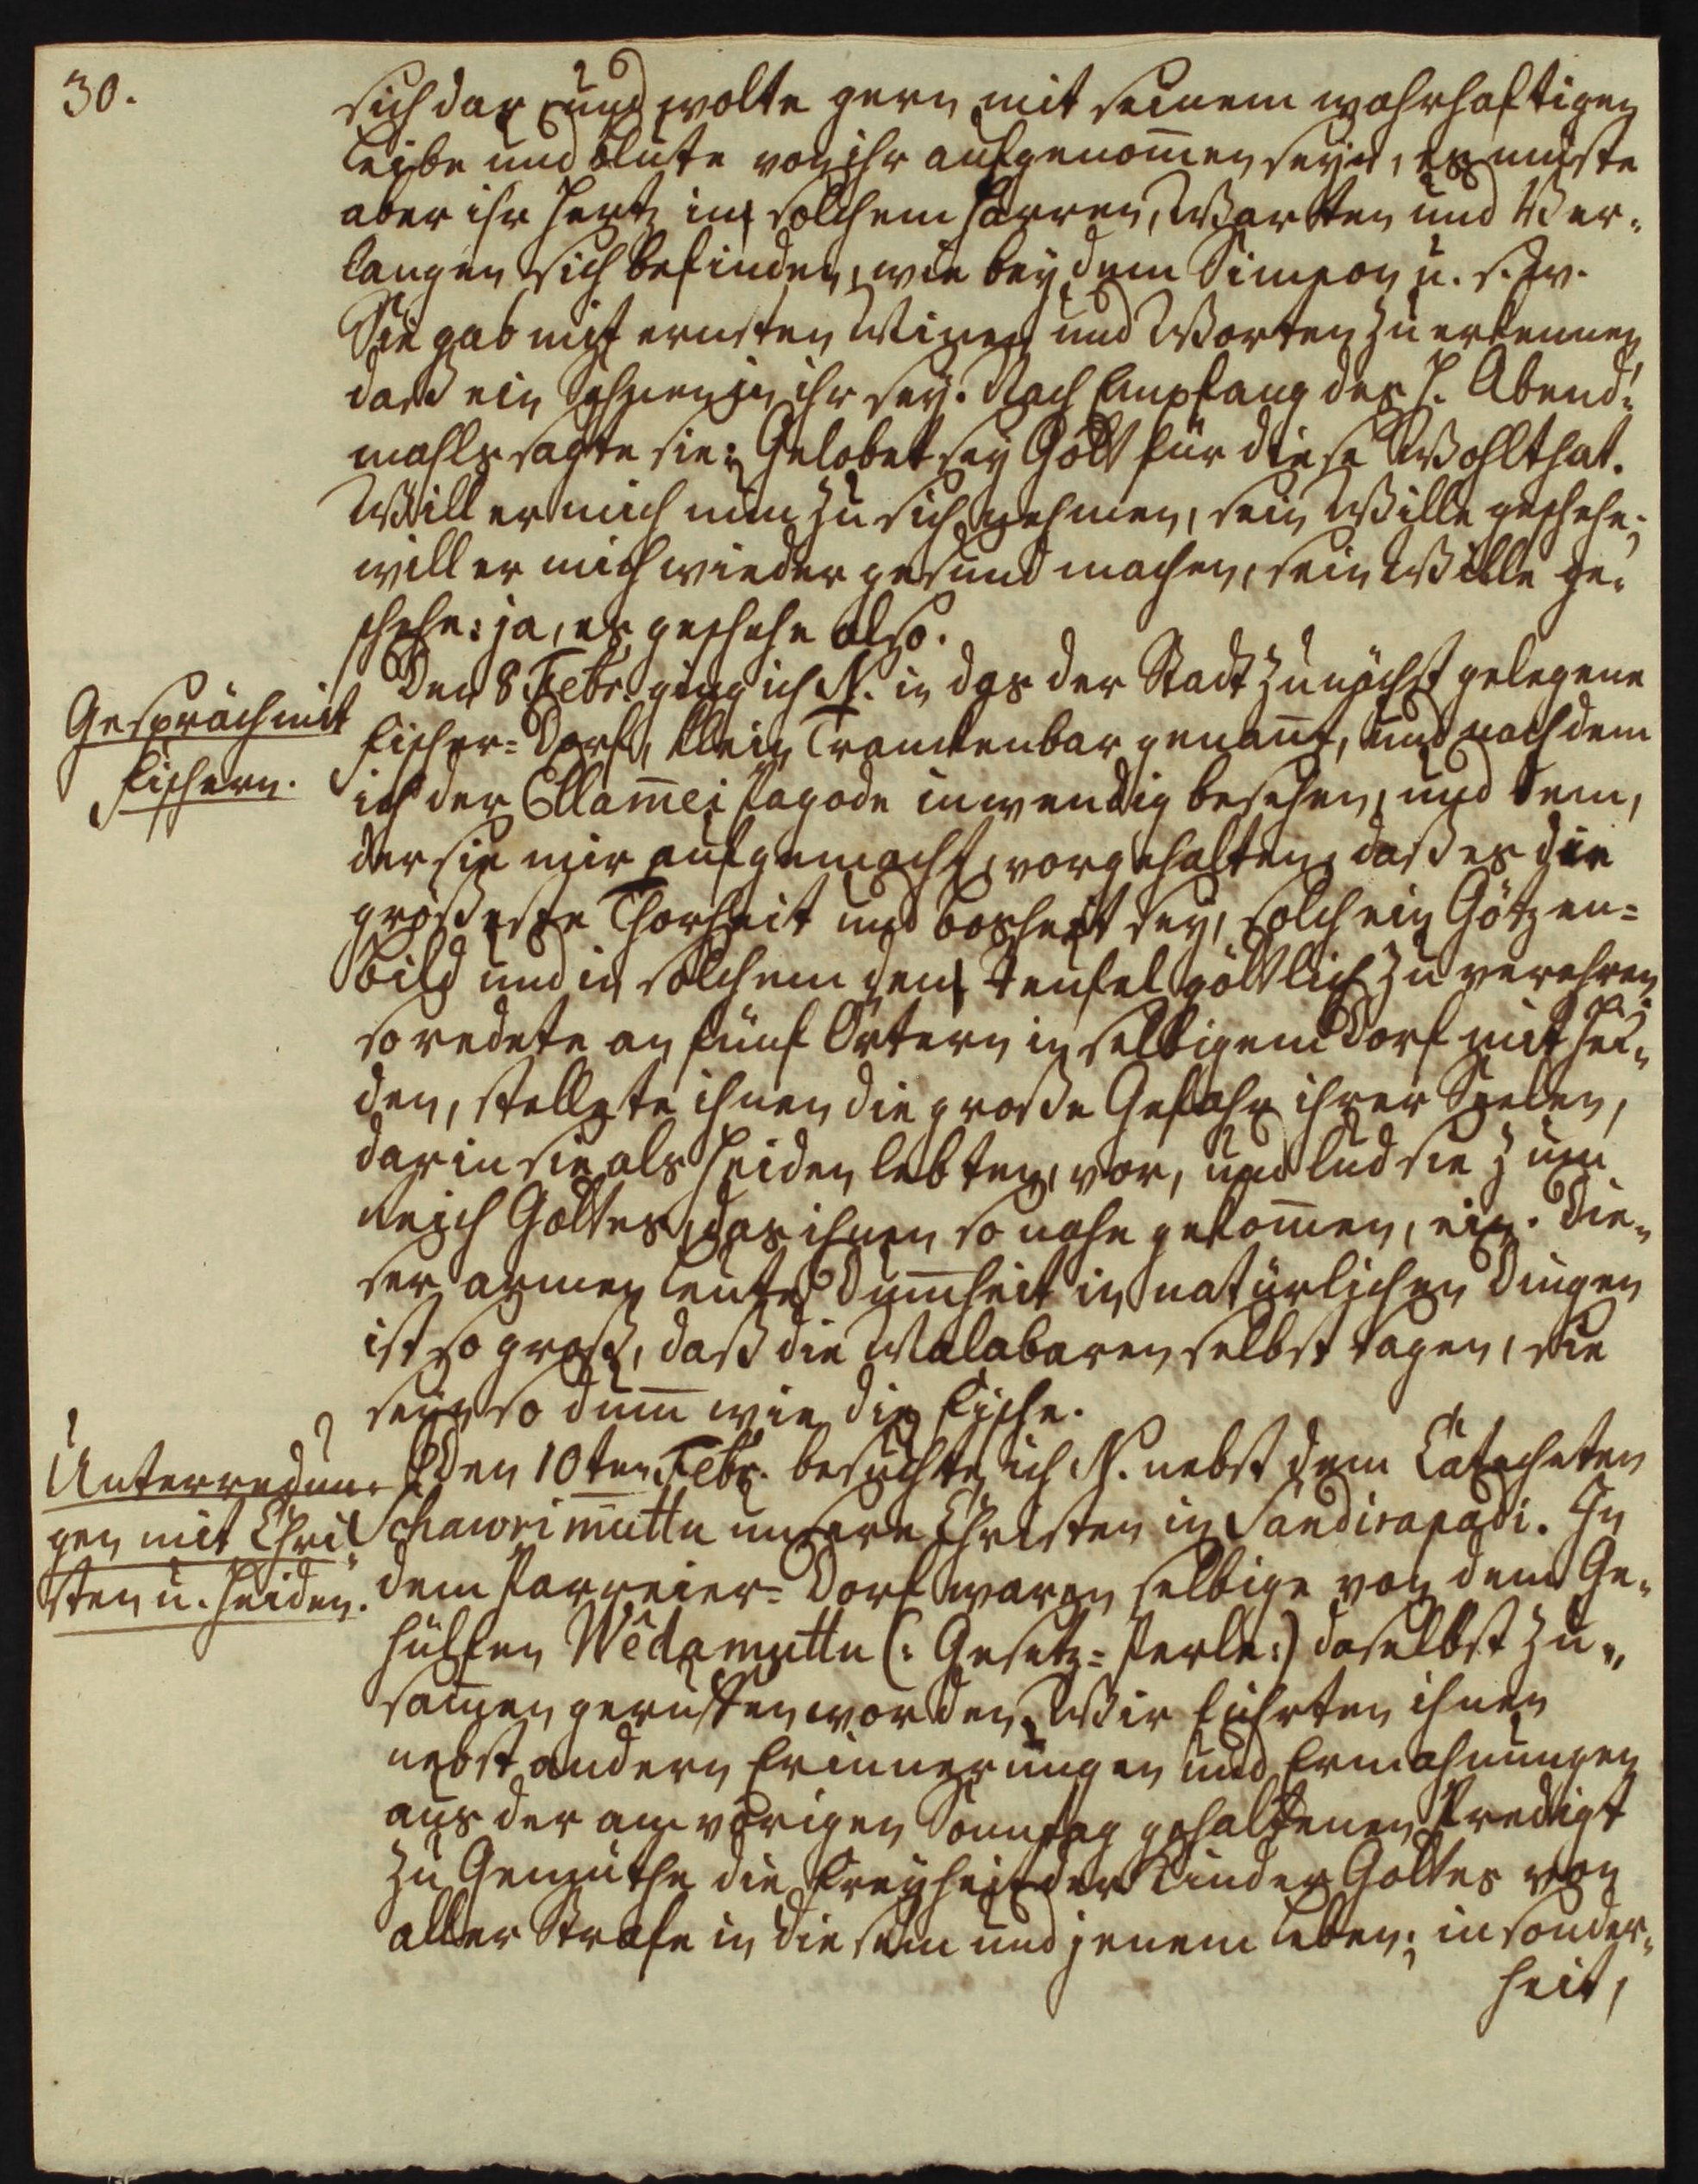 30.
sich dar und wolte gern mit seinem wahrhaftigen
Leibe und Blute von ihr aufgenom̅en seyn, es müste
aber ihr Hertz in solchem Harren, Warten und Ver-
langen sich befinden, wie bey dem Simeon u. s. w.
Sie gab mit ernsten Minen und Worten zu erkennen
daß ein Sehnen in ihr sey. Nach Empfang des H. Abend-
mahls sagte sie: Gelobet sey Gott für diese Wohlthat.
Will er mich nun zu sich nehmen, sein Wille geschehe;
will er mich wieder gesund machen, sein Wille ge-
schehe: ja, es geschehe also.
Gespräch mit
Fischern.
Den 8 Febr. ging ich N. in das der Stadt zunächst gelegene
Fischer-Dorf, klein Tranckenbar genan̅t, und nachdem
ich der Ellam̅ei Pagode inwendig besehen, und dem,
der sie mir aufgemacht, vorgehalten, daß es die
grösseste Thorheit und Bosheit sey, solch ein Götzen-
Bild und in solchem den Teufel göttlich zu verehren;
so redete an fünf Örtern in selbigem Dorf mit Hei-
den, stellete ihnen die große Gefahr ihrer Seelen,
darin sie als Heiden lebten, vor, und lud sie zum
Reich Gottes, das ihnen so nahe gekom̅en, ein. Die-
ser armen Leute Dum̅heit in natürlichen Dingen
ist so groß, daß die Malabaren selbst sagen, sie
seyn so dum̅ wie die Fische.
Unterredun-
gen mit Chri-
sten u. Heiden.
Den 10ten Febr. besuchte ich N. nebst dem Catecheten
Schawrimuttu unsere Christen in Sandirapadi. In
dem Parreier-Dorf waren selbige von dem Ge-
hülfen Wêdamuttu (: Gesetz-Perle:) daselbst zu-
sam̅en geruffen worden. Wir führten ihnen
nebst andern Erinnerungen und Ermahnungen
aus der am vorigen Sonntag gehaltenen Predigt
zu Gemüthe die Freyheit der Kinder Gottes von
aller Strafe in diesem und jenem Leben; insonder-
heit,